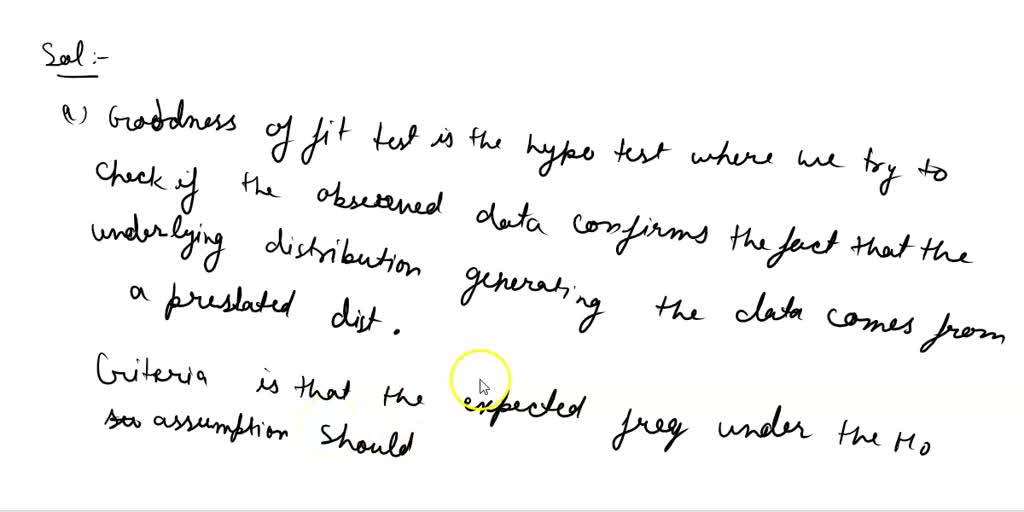 Sol :-
a) Goodness of fit test is the hypo test where we try to
check if the observed data confirms the fact that the
underlying distribution generating the data comes from
a prestated dist.
Criteria is that the expected freq under the H0
assumption should